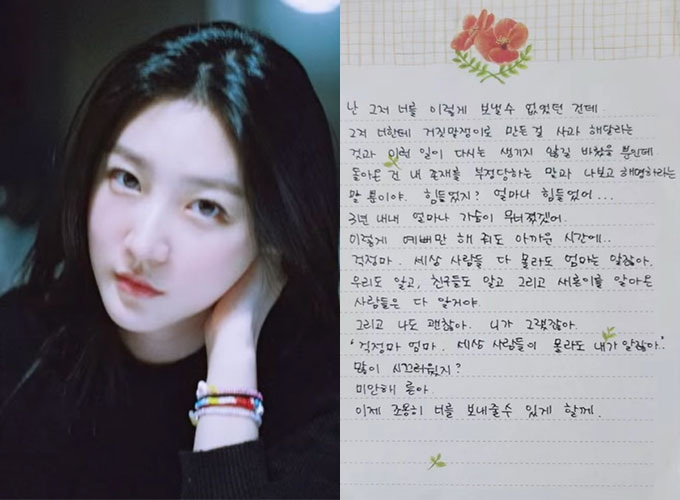 난 그저 너를 이렇게 보낼수 없었던 건데.
그저 너한테 거짓말쟁이로 만든걸 사과 해달라는
것과 이런 일이 다시는 생기지 않길 바랬을 뿐인데
돌아온 건 내 존재를 부정당하는 말과 나보고 해명하라는
말 뿐이야. 힘들었지? 얼마나 힘들었어...
3년 내내 얼마나 가슴이 무너졌겠어.
이렇게 예뻐만 해 줘도 아까운 시간에..
걱정마. 세상 사람들 다 몰라도 엄마는 알잖아.
우리도 알고, 친구들도 알고 그리고 새론이를 알아온
사람들은 다 알거야.
그리고 나도 괜찮아. 니가 그랬잖아.
'걱정마 엄마. 세상 사람들이 몰라도 내가 알잖아.'
많이 시끄러웠지?
미안해 론아
이제 조용히 너를 보내줄수 있게 할께.